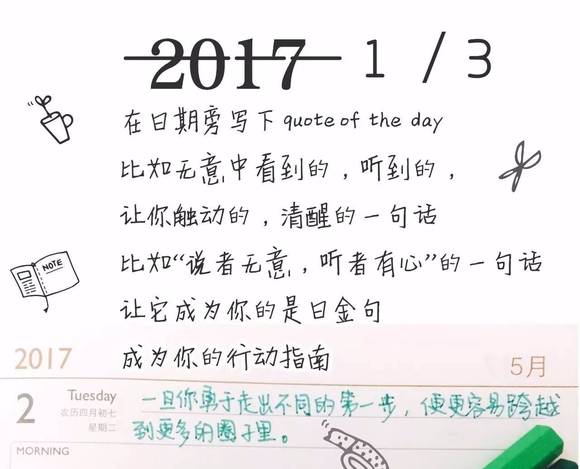 2017 1 / 3
在日期旁写下 quote of the day
比如无意中看到的，听到的，
让你触动的，清醒的一句话
比如“说者无意，听者有心”的一句话
NOTE
让它成为你的是日金句
成为你的行动指南
2017 5月
2 Tuesday
农历四月初七
星期二
一旦你勇于走出不同的第一步，便更容易跨越
到更多的圈子里。
MORNING